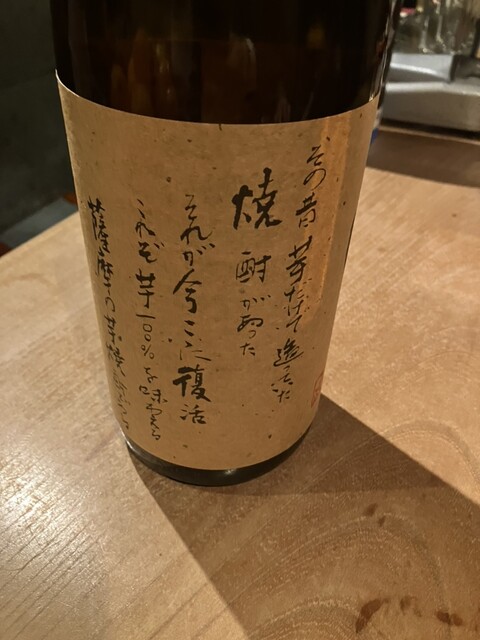 その昔芋だけで造った
焼酎があった
それが今ここに復活
これぞ芋一〇〇%を味わえる
薩摩の芋焼酎